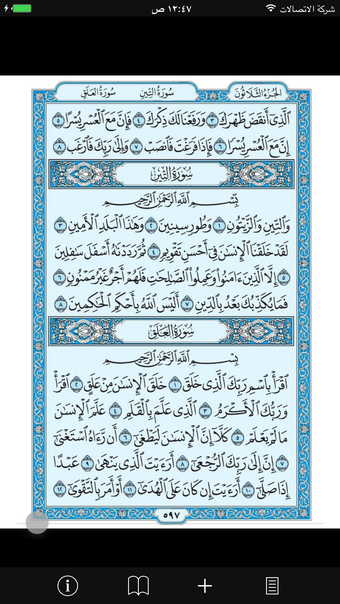 شركة الاتصالات ١٢:٤٧ ص
الجزء الثلاثون سورة التين سورة العلق
ٱلَّذِىٓ أَنقَضَ ظَهۡرَكَ ٣ وَرَفَعۡنَا لَكَ ذِكۡرَكَ ٤ فَإِنَّ مَعَ ٱلۡعُسۡرِ يُسۡرًا ٥
إِنَّ مَعَ ٱلۡعُسۡرِ يُسۡرٗا ٦ فَإِذَا فَرَغۡتَ فَٱنصَبۡ ٧ وَإِلَىٰ رَبِّكَ فَٱرۡغَب ٨
سُورَةُ التِّينِ
بِسۡمِ ٱللَّهِ ٱلرَّحۡمَٰنِ ٱلرَّحِيمِ
وَٱلتِّينِ وَٱلزَّيۡتُونِ ١ وَطُورِ سِينِينَ ٢ وَهَٰذَا ٱلۡبَلَدِ ٱلۡأَمِينِ ٣
لَقَدۡ خَلَقۡنَا ٱلۡإِنسَٰنَ فِىٓ أَحۡسَنِ تَقۡوِيمٖ ٤ ثُمَّ رَدَدۡنَٰهُ أَسۡفَلَ سَٰفِلِينَ
٥ إِلَّا ٱلَّذِينَ ءَامَنُواْ وَعَمِلُواْ ٱلصَّٰلِحَٰتِ فَلَهُمۡ أَجۡرٌ غَيۡرُ مَمۡنُونٖ ٦
فَمَا يُكَذِّبُكَ بَعۡدُ بِٱلدِّينِ ٧ أَلَيۡسَ ٱللَّهُ بِأَحۡكَمِ ٱلۡحَٰكِمِينَ ٨
سُورَةُ العَلَقِ
بِسۡمِ ٱللَّهِ ٱلرَّحۡمَٰنِ ٱلرَّحِيمِ
ٱقۡرَأۡ بِٱسۡمِ رَبِّكَ ٱلَّذِى خَلَقَ ١ خَلَقَ ٱلۡإِنسَٰنَ مِنۡ عَلَقٍ ٢ ٱقۡرَأۡ
وَرَبُّكَ ٱلۡأَكۡرَمُ ٣ ٱلَّذِى عَلَّمَ بِٱلۡقَلَمِ ٤ عَلَّمَ ٱلۡإِنسَٰنَ
مَا لَمۡ يَعۡلَمۡ ٥ كَلَّآ إِنَّ ٱلۡإِنسَٰنَ لَيَطۡغَىٰٓ ٦ أَن رَّءَاهُ ٱسۡتَغۡنَىٰٓ
٧ إِنَّ إِلَىٰ رَبِّكَ ٱلرُّجۡعَىٰٓ ٨ أَرَءَيۡتَ ٱلَّذِى يَنۡهَىٰ ٩ عَبۡدًا
إِذَا صَلَّىٰٓ ١٠ أَرَءَيۡتَ إِن كَانَ عَلَى ٱلۡهُدَىٰٓ ١١ أَوۡ أَمَرَ بِٱلتَّقۡوَىٰٓ ١٢
٥٩٧